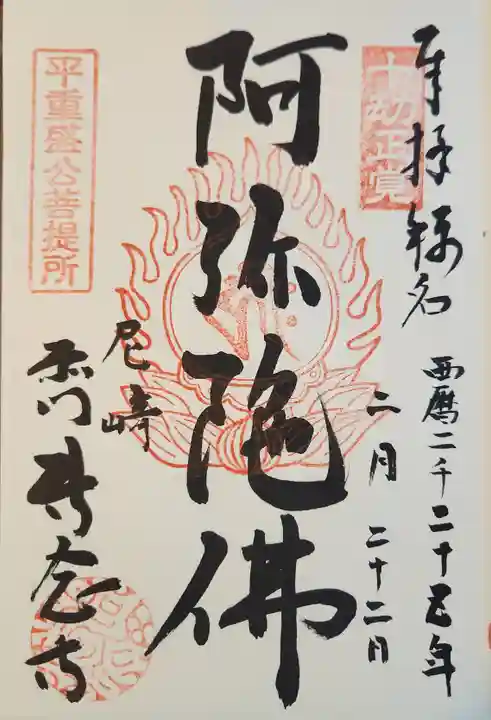 奉拝称名
十劫正覚
西暦二千二十五年
二月二十二日
阿弥陀佛
尼崎
専念寺
平重盛公菩提所